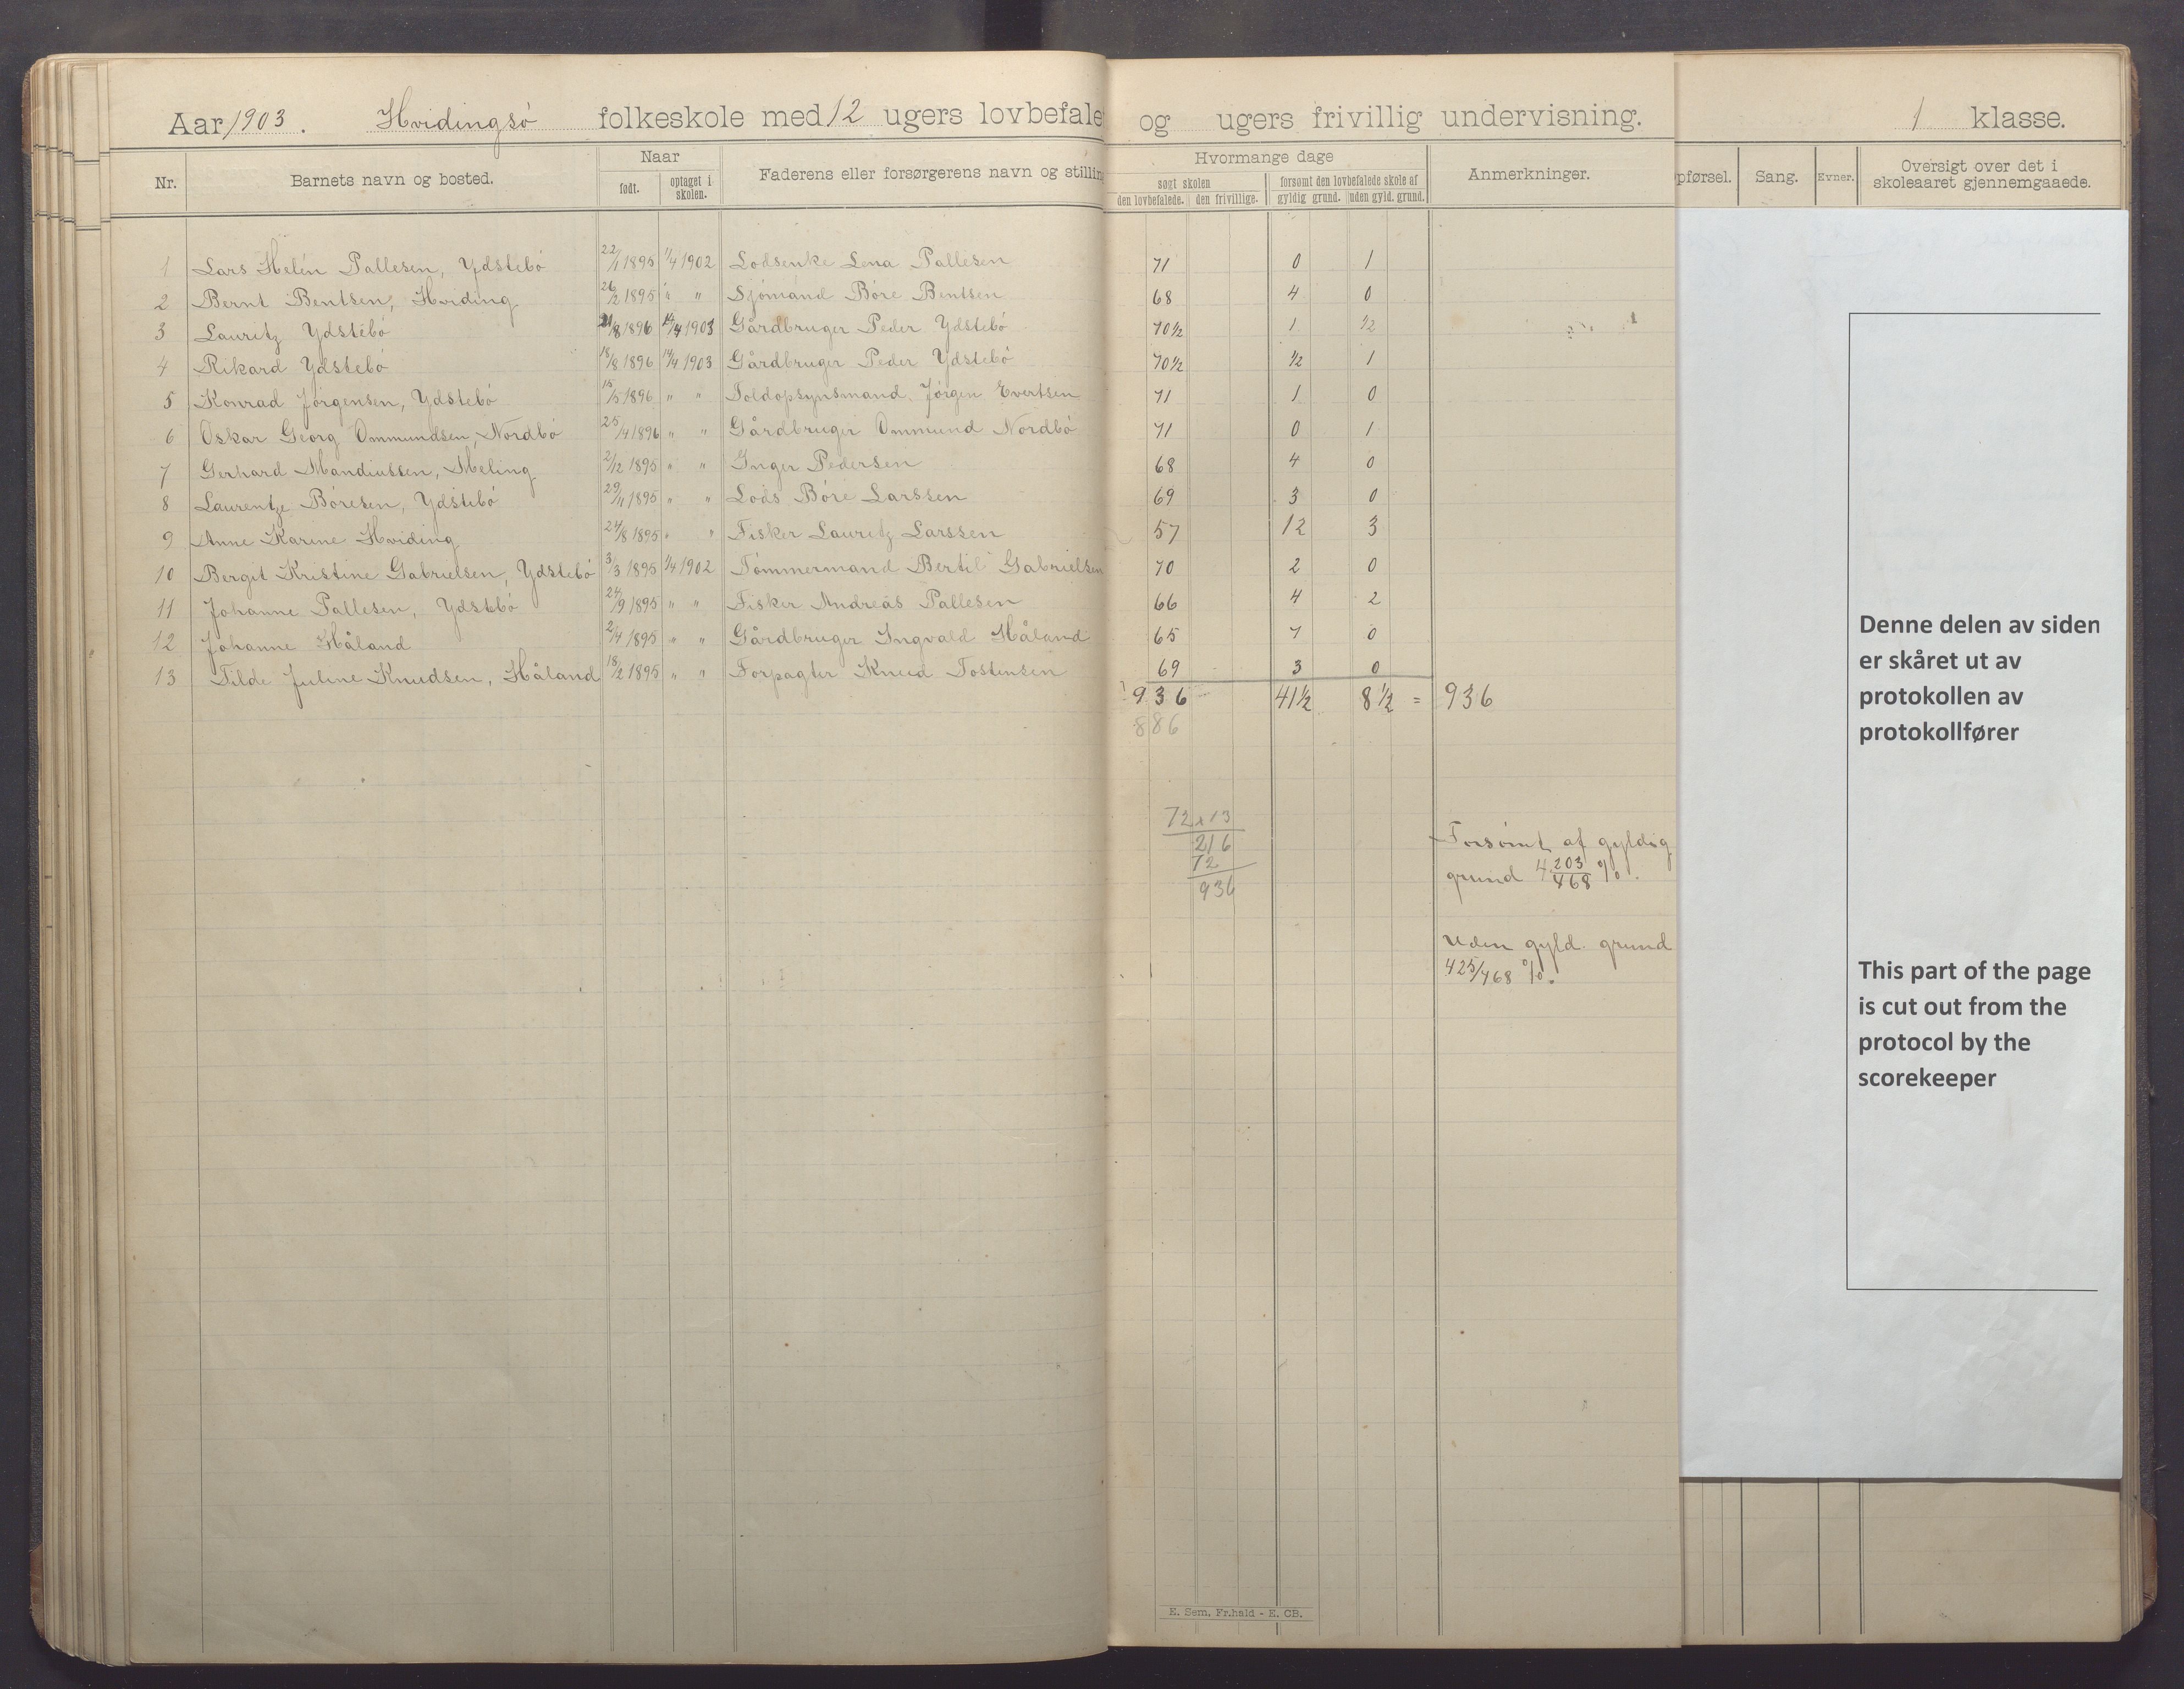 Aar 1903. Hvidingsö folkeskole med 12 ugers lovbefale og ugers frivillig undervisning. 1 klasse.
Nr. Barnets navn og bosted. Naar født. optaget i skolen. Faderens eller forsørgerens navn og stilling
Hvormange dage søgt skolen den lovbefalede. den frivillige. forsømt den lovbefalede skole af gyldig grund. uden gyld. grund. Anmerkninger.
pførsel. Sang. Evner. Oversigt over det i skoleaaret gjennemgaaede.
1 Lars Helén Pallesen, Ydstebö 22/1 1895 1/4 1902 Lodsenke Lena Pallesen 71 0 1
2 Bernt Bentsen, Hviding 26/2 1895 " " Sjömand Böre Bentsen 68 4 0
3 Lauritz Ydstebö 21/8 1896 14/4 1903 Gårdbruger Peder Ydstebö 70½ 1 ½
4 Rikard Ydstebö 18/8 1896 14/4 1903 Gårdbruger Peder Ydstebö 70½ ½ 1
5 Konrad Jörgensen, Ydstebö 15/5 1896 " " Toldopsynsmand Jörgen Evertsen 71 1 0
6 Oskar Georg Ommundsen, Nordbö 25/4 1896 " " Gårdbruger Ommund Nordbö 71 0 1
7 Gerhard Mandiussen, Meling 2/12 1895 " " Inger Pedersen 68 4 0
8 Laurentze Böresen, Ydstebö 29/11 1895 " " Lods Böre Larssen 69 3 0
9 Anne Karine Hviding 24/8 1895 " " Fisker Lauritz Larssen 57 12 3
10 Bergit Kristine Gabrielsen, Ydstebö 3/3 1895 1/4 1902 Tömmermand Bertil Gabrielsen 70 2 0
11 Johanne Pallesen, Ydstebö 24/9 1895 " " Fisker Andreas Pallesen 66 4 2
12 Johanne Håland 2/4 1895 " " Gårdbruger Ingvald Håland 65 7 0
13 Tilde Juline Knudsen, Håland 18/2 1895 " " Forpagter Knud Tostensen 69 3 0
936 41½ 8½ = 936
886
72 x 13
216
72
936
Forsömt af gyldig
grund 4 203/468 %.
Uden gyld. grund
425/468 %.
E. Sem, Fr.hald - E. CB.
Denne delen av siden
er skåret ut av
protokollen av
protokollfører
This part of the page
is cut out from the
protocol by the
scorekeeper